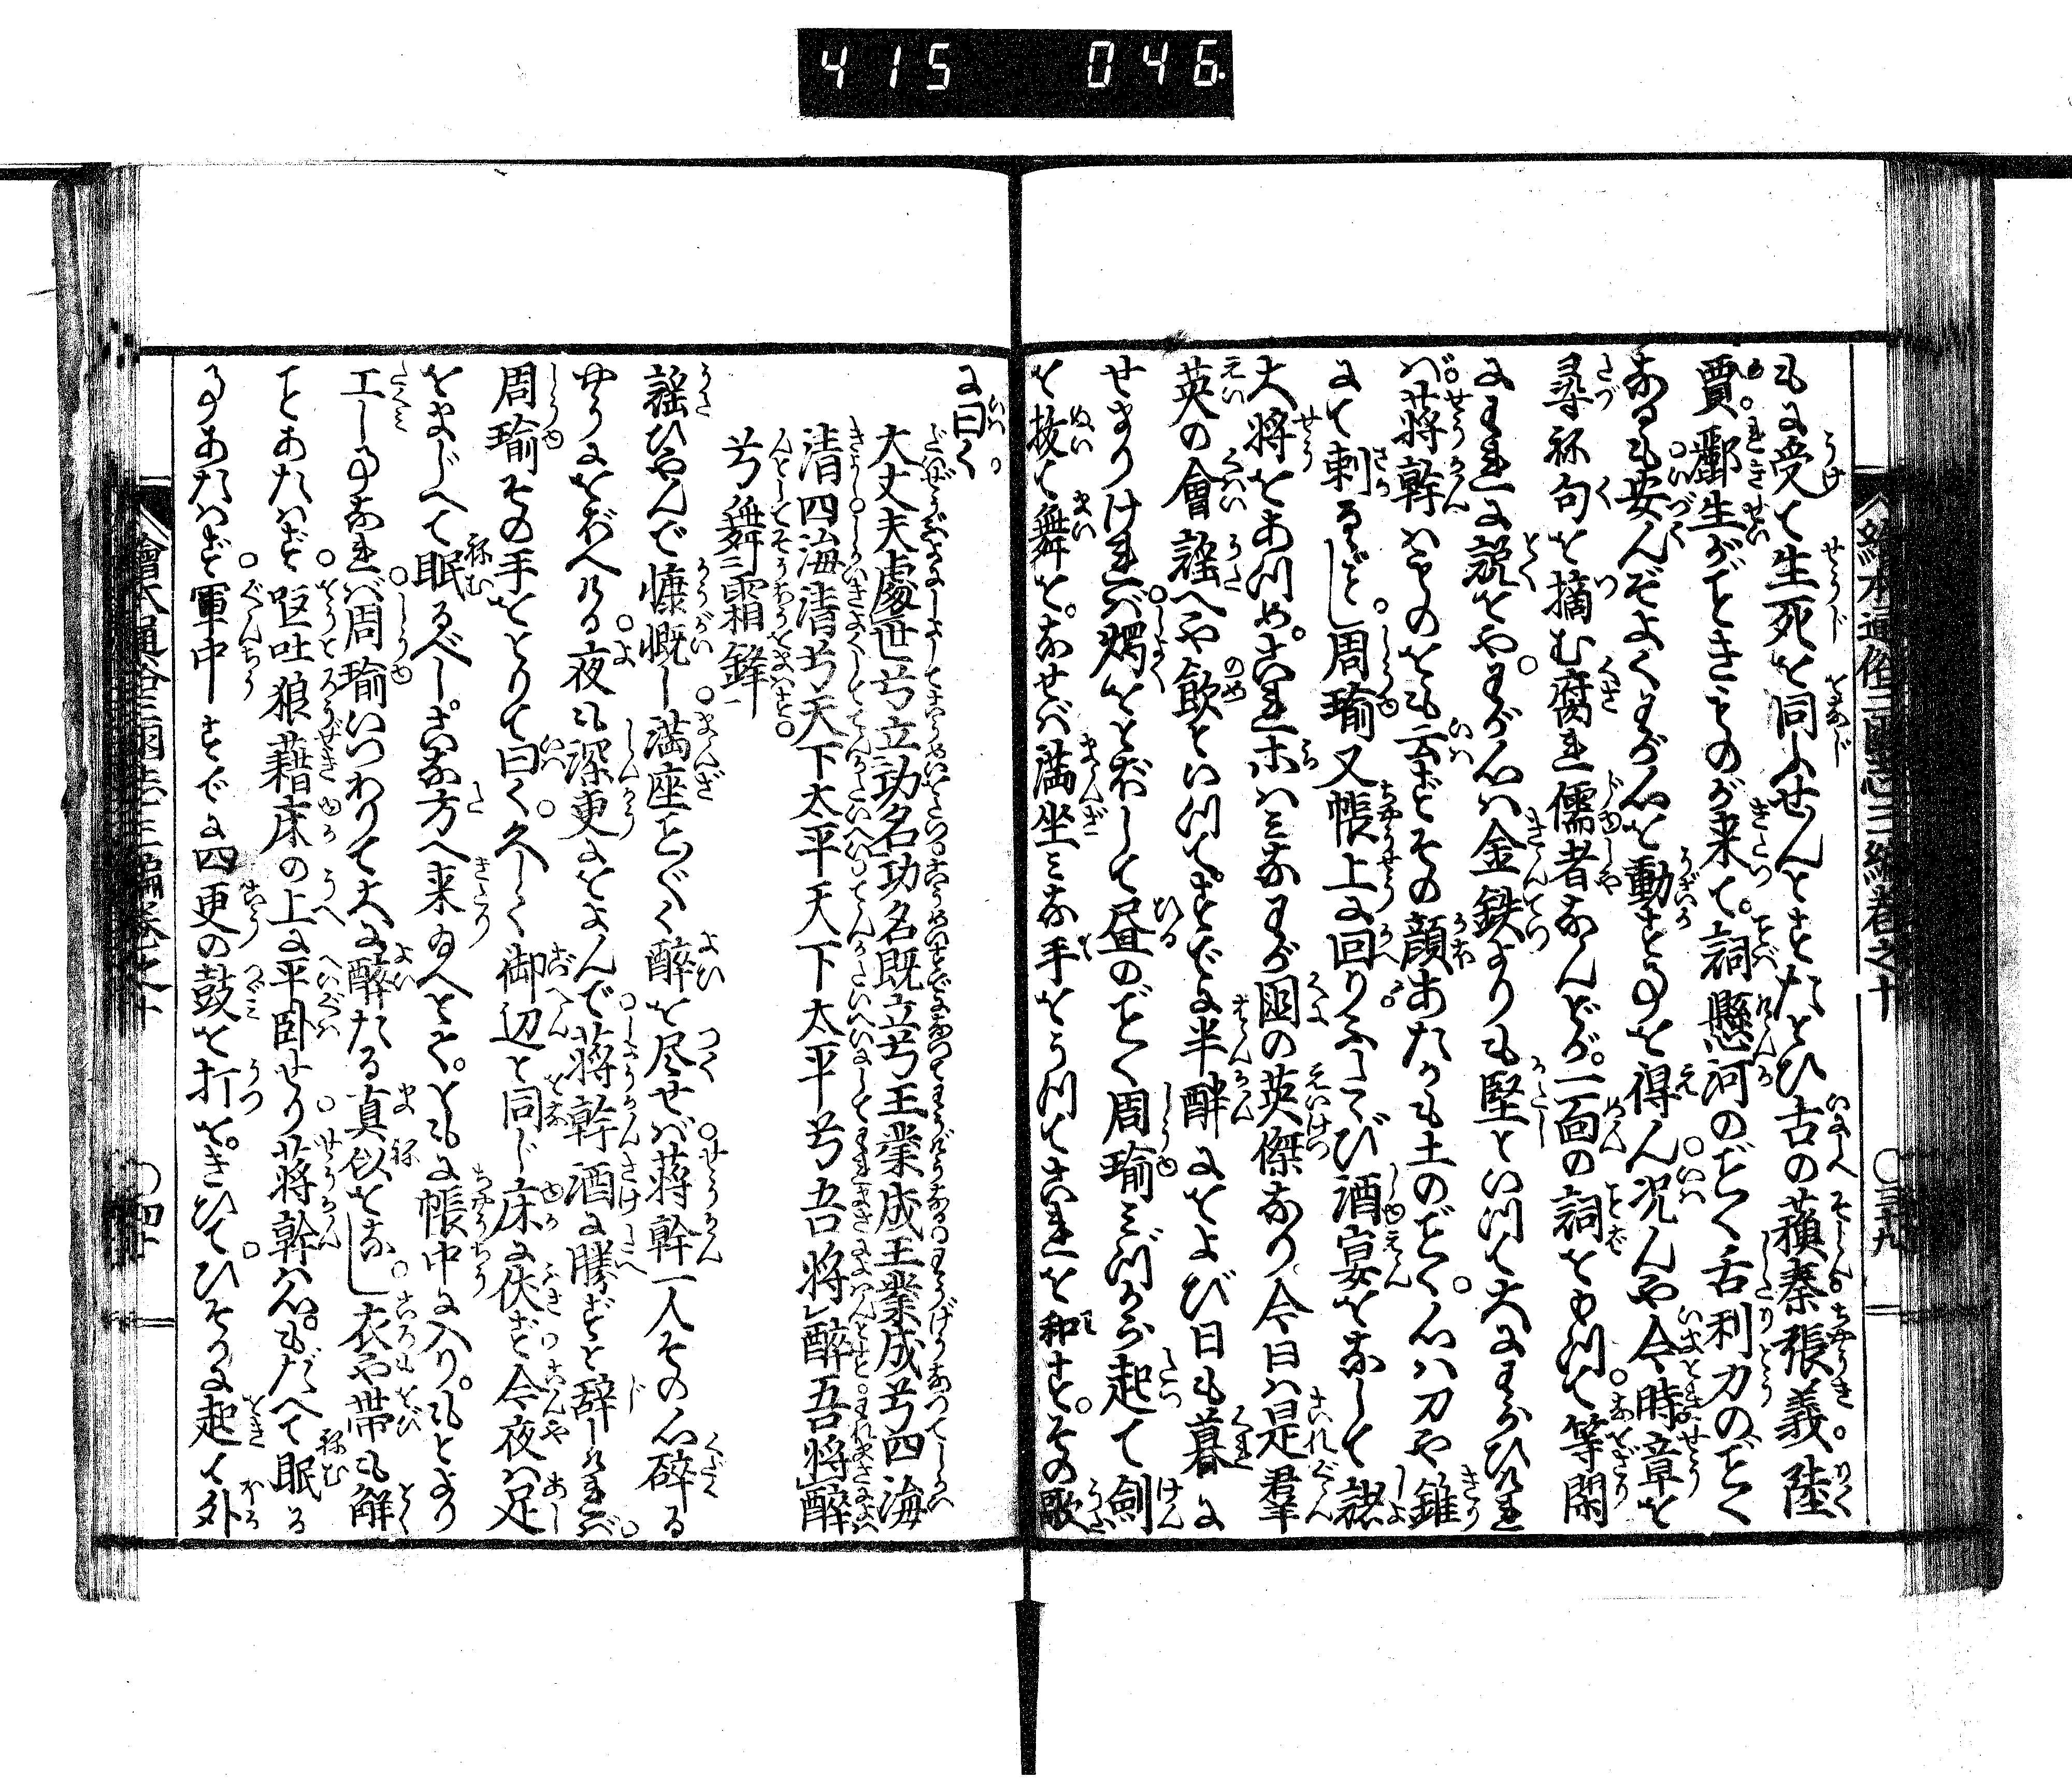 415 046.
絵本通俗三國志三編巻之十 〇三十九
もに受て生死を同ふせんとすたとひ古の蘇秦張義陸
賈酈生がごときものが来て詞懸河のごとく舌利刀のごとく
なるも安んぞよくわが心を動すことを得ん况んや今時章を
尋ね句を摘む腐れ儒者なんどが一面の詞をもつて等閑
にわれに説をやわが心は金鉄よりも堅といつて大にわらひければ
蒋幹はものをも云ずその顔あたかも土のごとく心は刀や錐
にて刺るごとし周瑜又帳上に回りふたゝび酒宴をなして諸
大将をあつめこれホはみなわが国の英傑なり今日は是羣
英の會謡へや飲といつてすでに半酣にをよび日も暮に
せまりければ燭をとぼして昼のごとく周瑜みづから起て劍
を抜て舞をなせば満坐みな手をうつてこれを和すその歌
に曰く
大丈夫處世兮立功名功名既立兮王業成王業成兮四海
清四海清兮天下太平天下太平兮吾将醉吾将醉
兮舞霜鋒
謡ひやんで慷慨し満座こと〴〵く醉を尽せば蒋幹一人その心碎る
やうにをぼへける夜も深更にをよんで蒋幹酒に勝ずと辞しければ
周瑜その手をとりて曰く久しく御辺と同じ床に伏ず今夜は足
をまじへて眠るべしこな方へ来給へとてともに帳中に入りもとより
工しことなれば周瑜いつわりて大に醉たる真似をなし衣や帯も解
ことあたはず嘔吐狼藉床の上に平臥せり蒋幹は心もだへて眠る
ことあたはず軍中すでに四更の鼓を打をきひてひそかに起て外
繪本通俗三國志三編巻之十 〇四十